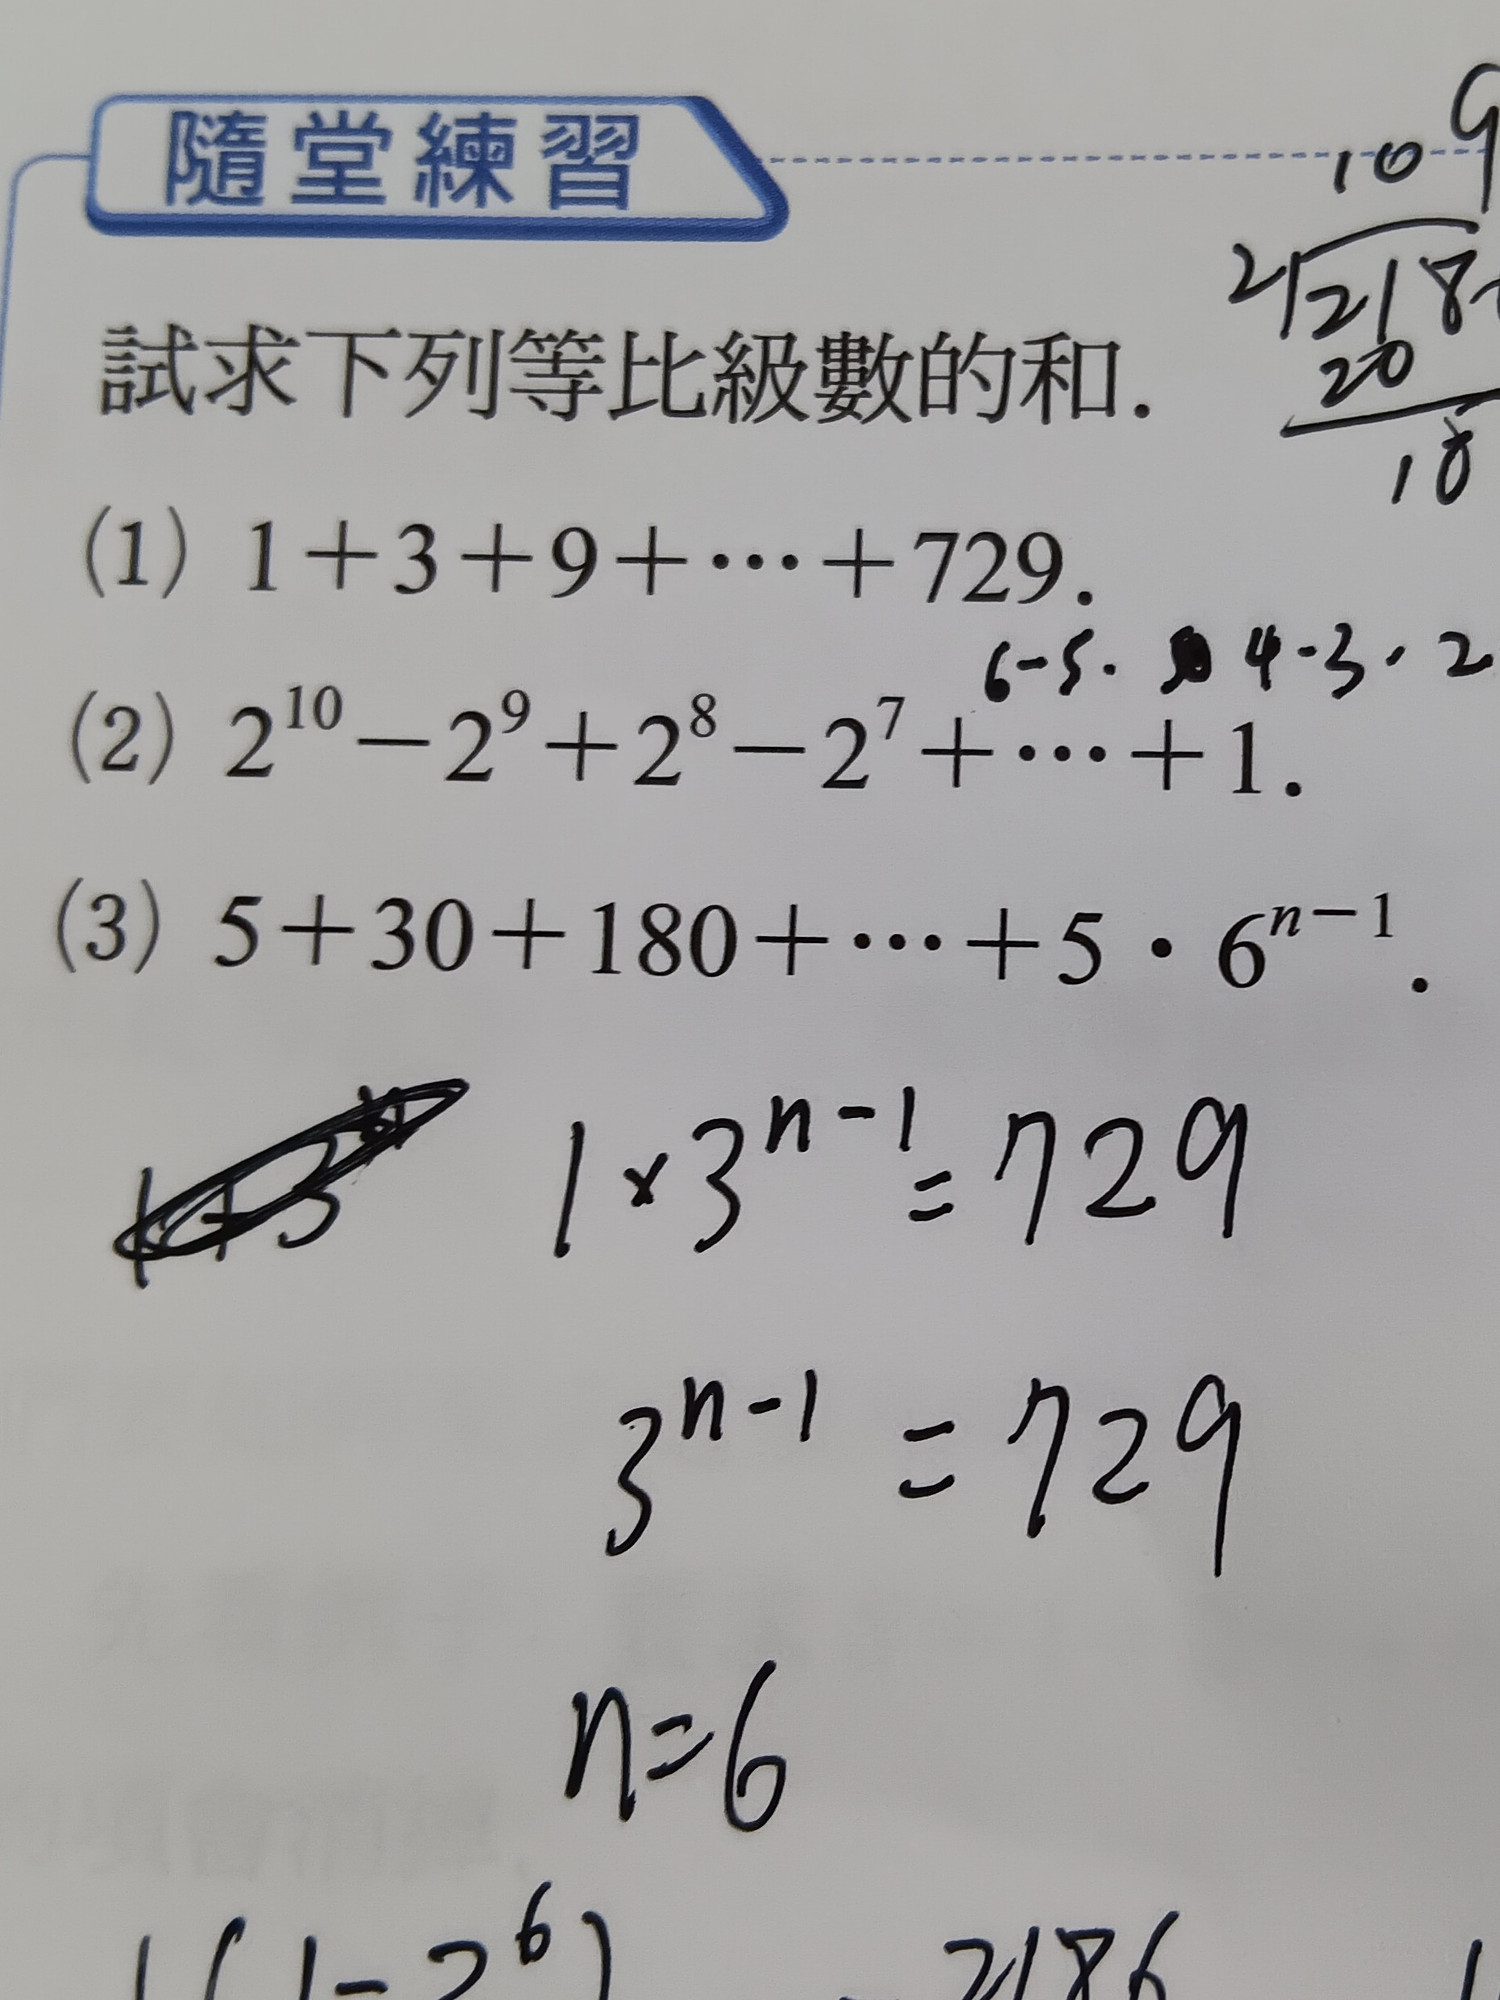 隨堂練習
試求下列等比級數的和.
(1) 1+3+9+⋯+729.
(2) 2^10−2^9+2^8−2^7+⋯+1.
(3) 5+30+180+⋯+5·6^(n−1).
109
2)218
20
18
6-5. 4.3.2
1×3^(n-1)=729
3^(n-1)=729
n=6
1(1-3^6) 2186